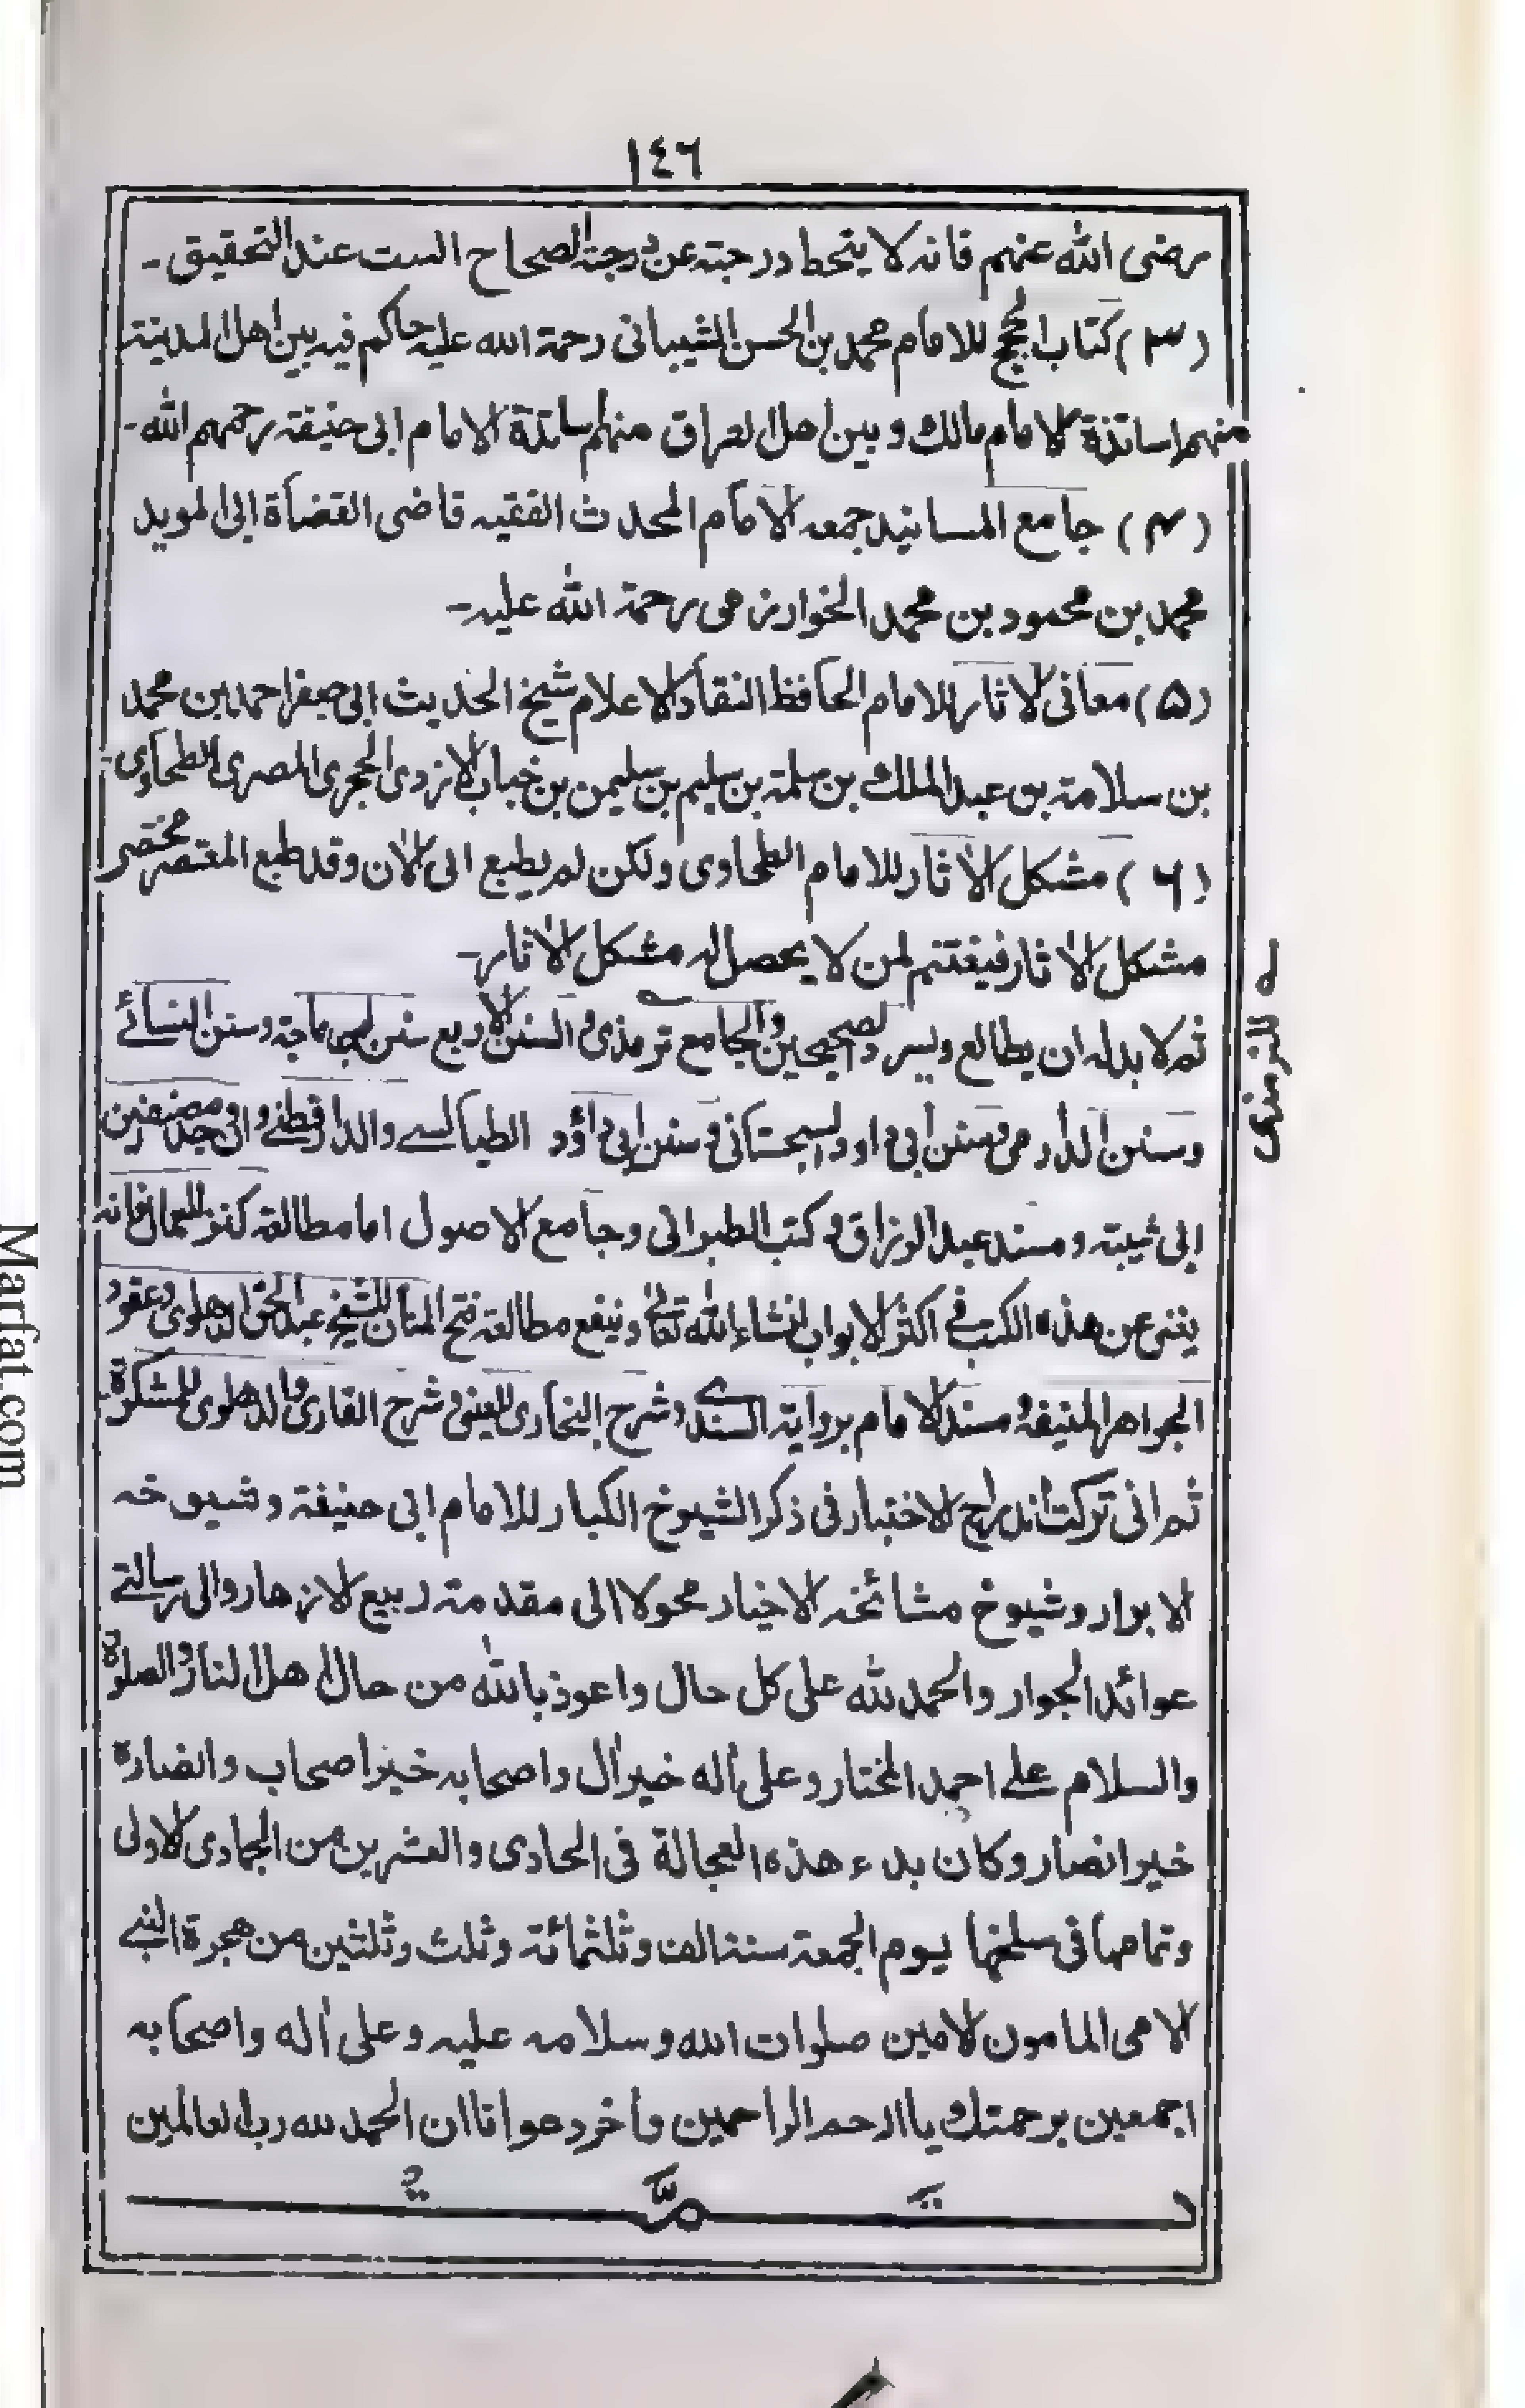 ١٤٦
رضى الله عنهم فانه لا ينحط درجته عن درجة الصحاح الست عند التحقيق۔
(۳) كتاب الحجج للامام محمد بن الحسن الشيبانى رحمة الله عليه حاكم فيه بين اهل المدينة
منهم اساتذة الامام مالك وبين اهل العراق منهم اساتذة الامام ابى حنيفة رحمهم الله۔
(۴) جامع المسانيد جمعه الامام المحدث الفقيه قاضى القضاة ابى المويد
محمد بن محمود بن محمد الخوارزمى رحمة الله عليه۔
(۵) معانى الاثار للامام الحافظ النقاد الاعلام شيخ الحديث ابى جعفر احمد بن محمد
بن سلامة بن عبد الملك بن سلمة بن سليم بن سليمن بن خباب الازدى الحجرى المصرى الطحاوى۔
(۶) مشكل الاثار للامام الطحاوى ولكن لم يطبع الى الان وقد طبع المعتصر مختصر
مشكل الاثار فيغتنم لمن لا يحصل له مشكل الاثار۔
ثم لا بد له ان يطالع ويسرد الصحيحين والجامع ترمذى والسنن الاربع سنن ابن ماجة وسنن النسائے
وسنن الدارمى وسنن ابى داود السجستانى وسنن ابى داؤد الطيالسے والدارقطنے و مصنفين
ابى شيبة ومسند عبد الرزاق وكتب الطبرانى وجامع الاصول اما مطالعة كنز العمال فانه
يغنى عن هذه الكتب فے اكثر الابواب انشاء الله تعالے وينفع مطالعة فتح المنان للشيخ عبد الحق الدهلوى وعقود
الجواهر المنيفة ومسند الامام برواية السندے وشرح البخارى للعينى وشرح القارى والدهلوى للمشكوة
ثم انى تركت اندراج الاختبار فى ذكر الشيوخ الكبار للامام ابى حنيفة وشيوخه
الابرار وشيوخ مشائخه الاخيار محولا الى مقدمة ربيع الازهار والى رسالتے
عوائد الجوار والحمد لله على كل حال واعوذ بالله من حال اهل النار والصلوة
والسلام علے احمد المختار وعلى أله خير أل واصحابه خير اصحاب وانصاره
خير انصار وكان بدء هذه العجالة فى الحادى والعشرين من الجمادى الاولى
وتمامها فى سلخها يوم الجمعة سنة الف وثلثمائة وثلث وثلثين من هجرة النبے
الامى المامون الامين صلوات الله وسلامه عليه وعلى أله واصحابه
اجمعين برحمتك يا ارحم الراحمين وأخر دعوانا ان الحمد لله رب العالمين
تمت
ے للترمذى
Marfat.com